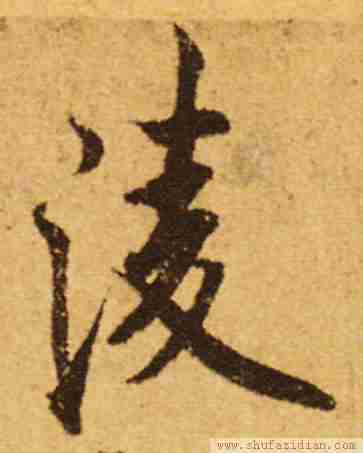 淩
www.shufazidian.com